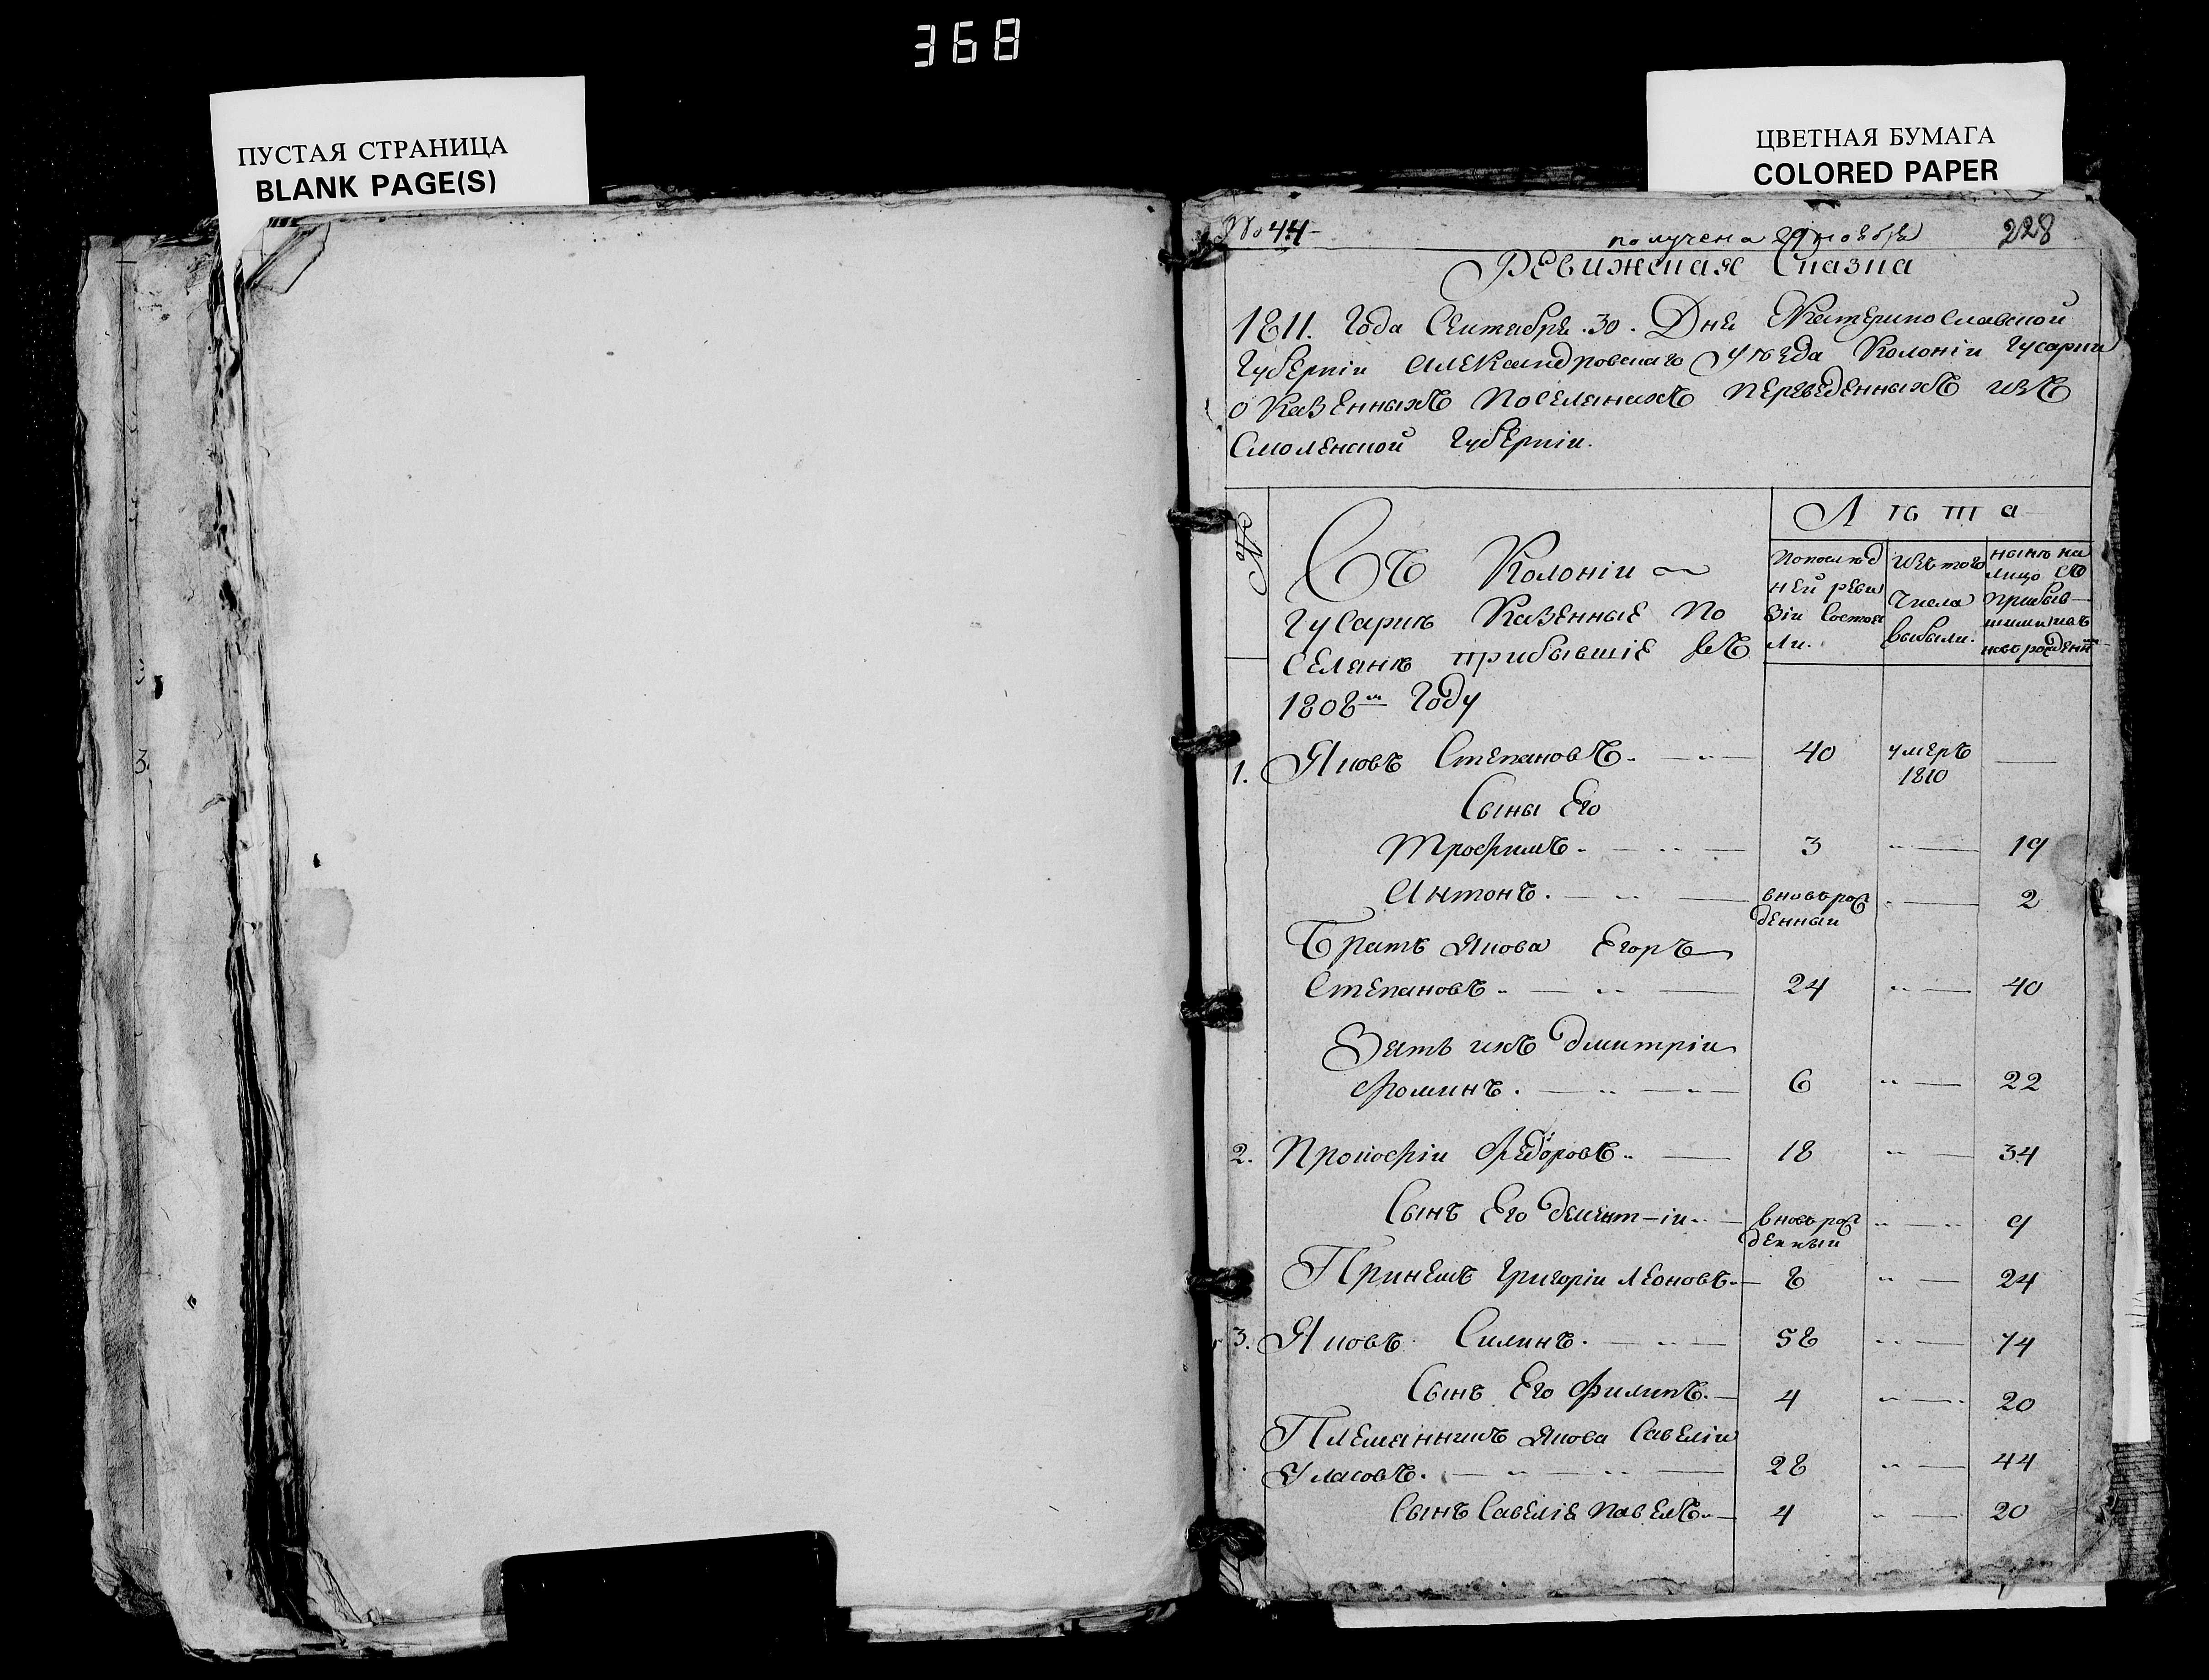 368
ПУСТАЯ СТРАНИЦА
BLANK PAGE(S)
ЦВЕТНАЯ БУМАГА
COLORED PAPER
№ 44
получена 29 ноября 228
Ревижская Сказка
1811. Года Сентября .30. Дня Екатеринославской
Губерніи Александровскаго уѣзда Колоніи Гусарки
о Казенныхъ Поселянахъ переведенныхъ изъ
Смоленской Губерніи.
№
Съ Колоніи
Гусаркѣ Казенные По
селянѣ прибывшіе въ
1808м Году
Лѣта
попослѣд
ней реви
зіи Состоя
ли.
изъ того
Числа
выбыли.
нынѣ на
лицо съ
прибыв
шими и съ
новорожденн
1. Яковъ Степановъ. 40 умеръ 1810
Сыны Его
Трофимъ. 3 19
Антонъ. вновьрож
денный 2
Братъ Якова Егоръ
Степановъ 24 40
Зять ихъ Дмитріи
Фоминъ. 6 22
2. Прокофіи Федоровъ 18 34
Сынъ Его Дементіи вновьрож
денный 9
Пріемъ Григоріи Леоновъ 8 24
3. Яковъ Силинъ. 58 74
Сынъ Его Филипъ. 4 20
Племянникъ Якова Савеліи
Уласовъ. 28 44
Сынъ Савеліе Павелъ 4 20